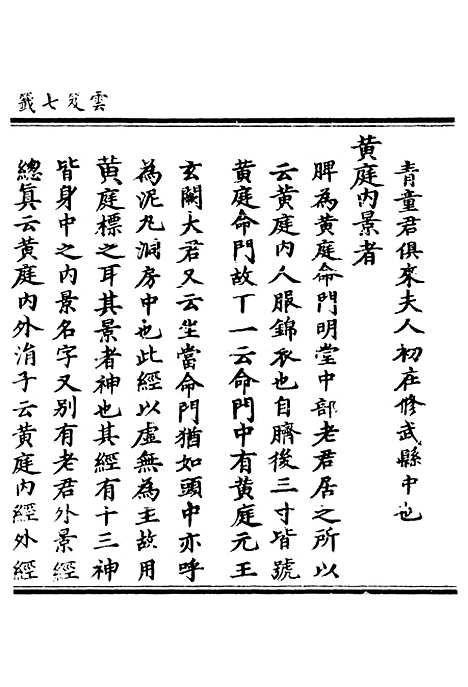 雲笈七籤
青童君俱來夫人初在修武縣中也
黃庭內景者
脾為黃庭命門明堂中部老君居之所以
云黃庭內人服錦衣也自臍後三寸皆號
黃庭命門故下一云命門中有黃庭元王
玄闕大君又云坐當命門猶如頭中亦呼
為泥丸洞房中也此經以虛無為主故用
黃庭標之耳其景者神也其經有十三神
皆身中之內景名字又別有老君外景經
總眞云黃庭內外涓子云黃庭內經外經